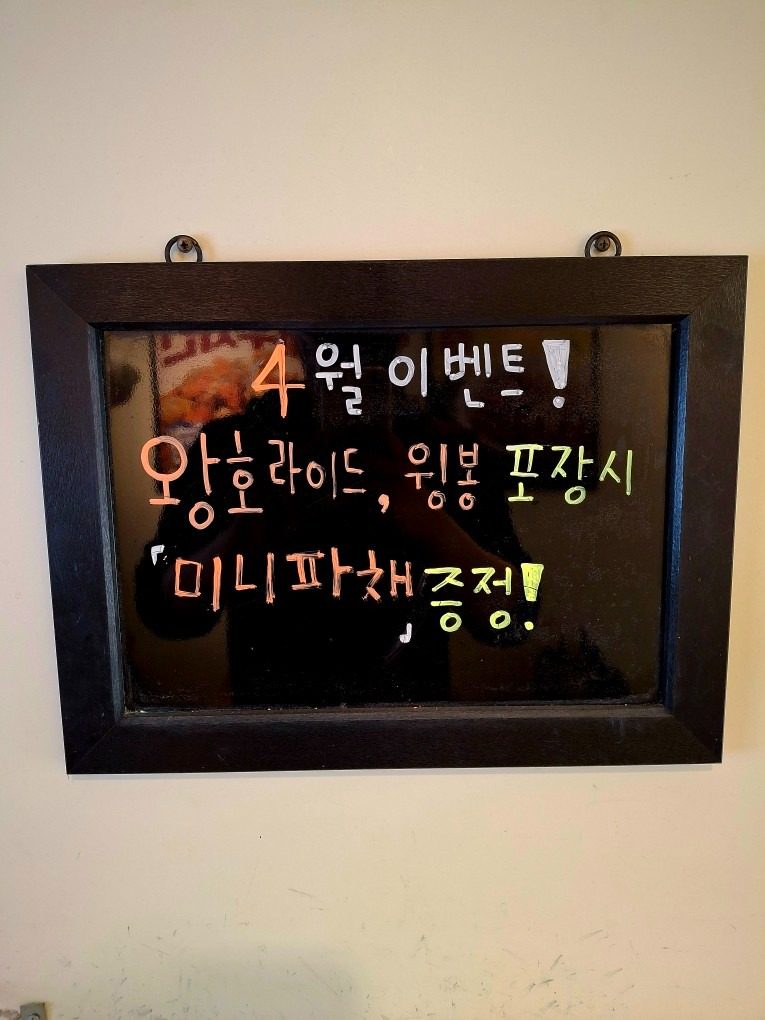 4월 이벤트!
왕호라이드, 윙봉 포장시
「미니파채」 증정!